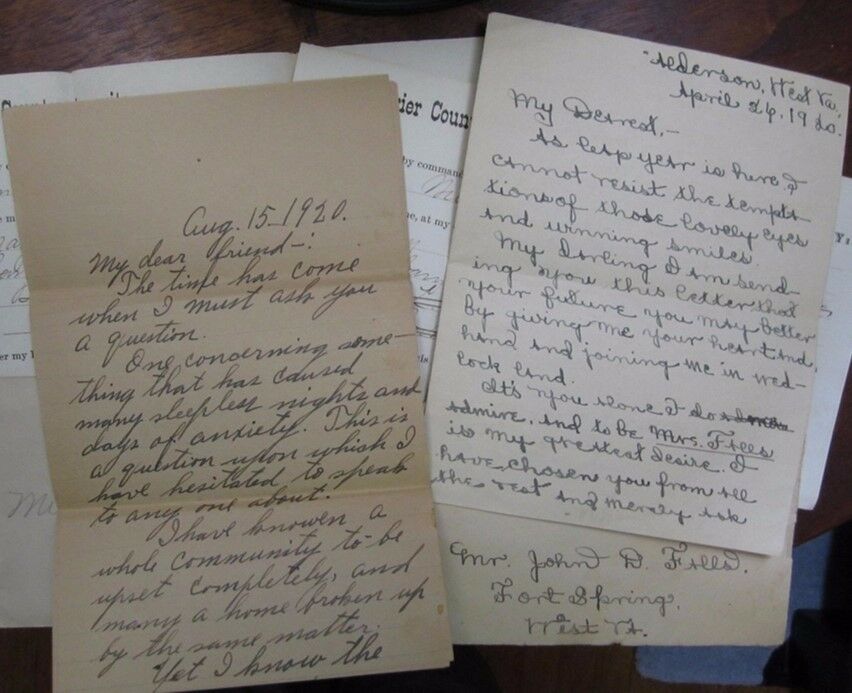 Aug. 15-1920.
My dear friend-:
The time has come
when I must ask you
a question.
One concerning some-
thing that has caused
many sleepless nights and
days of anxiety. This is
a question upon which I
have hesitated to speak
to any one about.
I have knowen a
whole community to be
upset completely, and
many a home broken up
by the same matter.
Yet I know the
Alderson, West Va,
April 26, 1920.
My Dearest,-
As leap year is here I
cannot resist the tempta-
tions of those lovely eyes
and winning smiles.
My Darling I am send-
ing you this letter that
your future you may better
by giving me your heart and,
hand and joining me in wed-
lock land.
It's you alone I do
admire, and to be Mrs. Fills
is my greatest desire. I
have chosen you from all
the rest and merely ask
Mr. John D. Fills.
Fort Spring.
West Va.
rier Coun
by comman
ne, at my